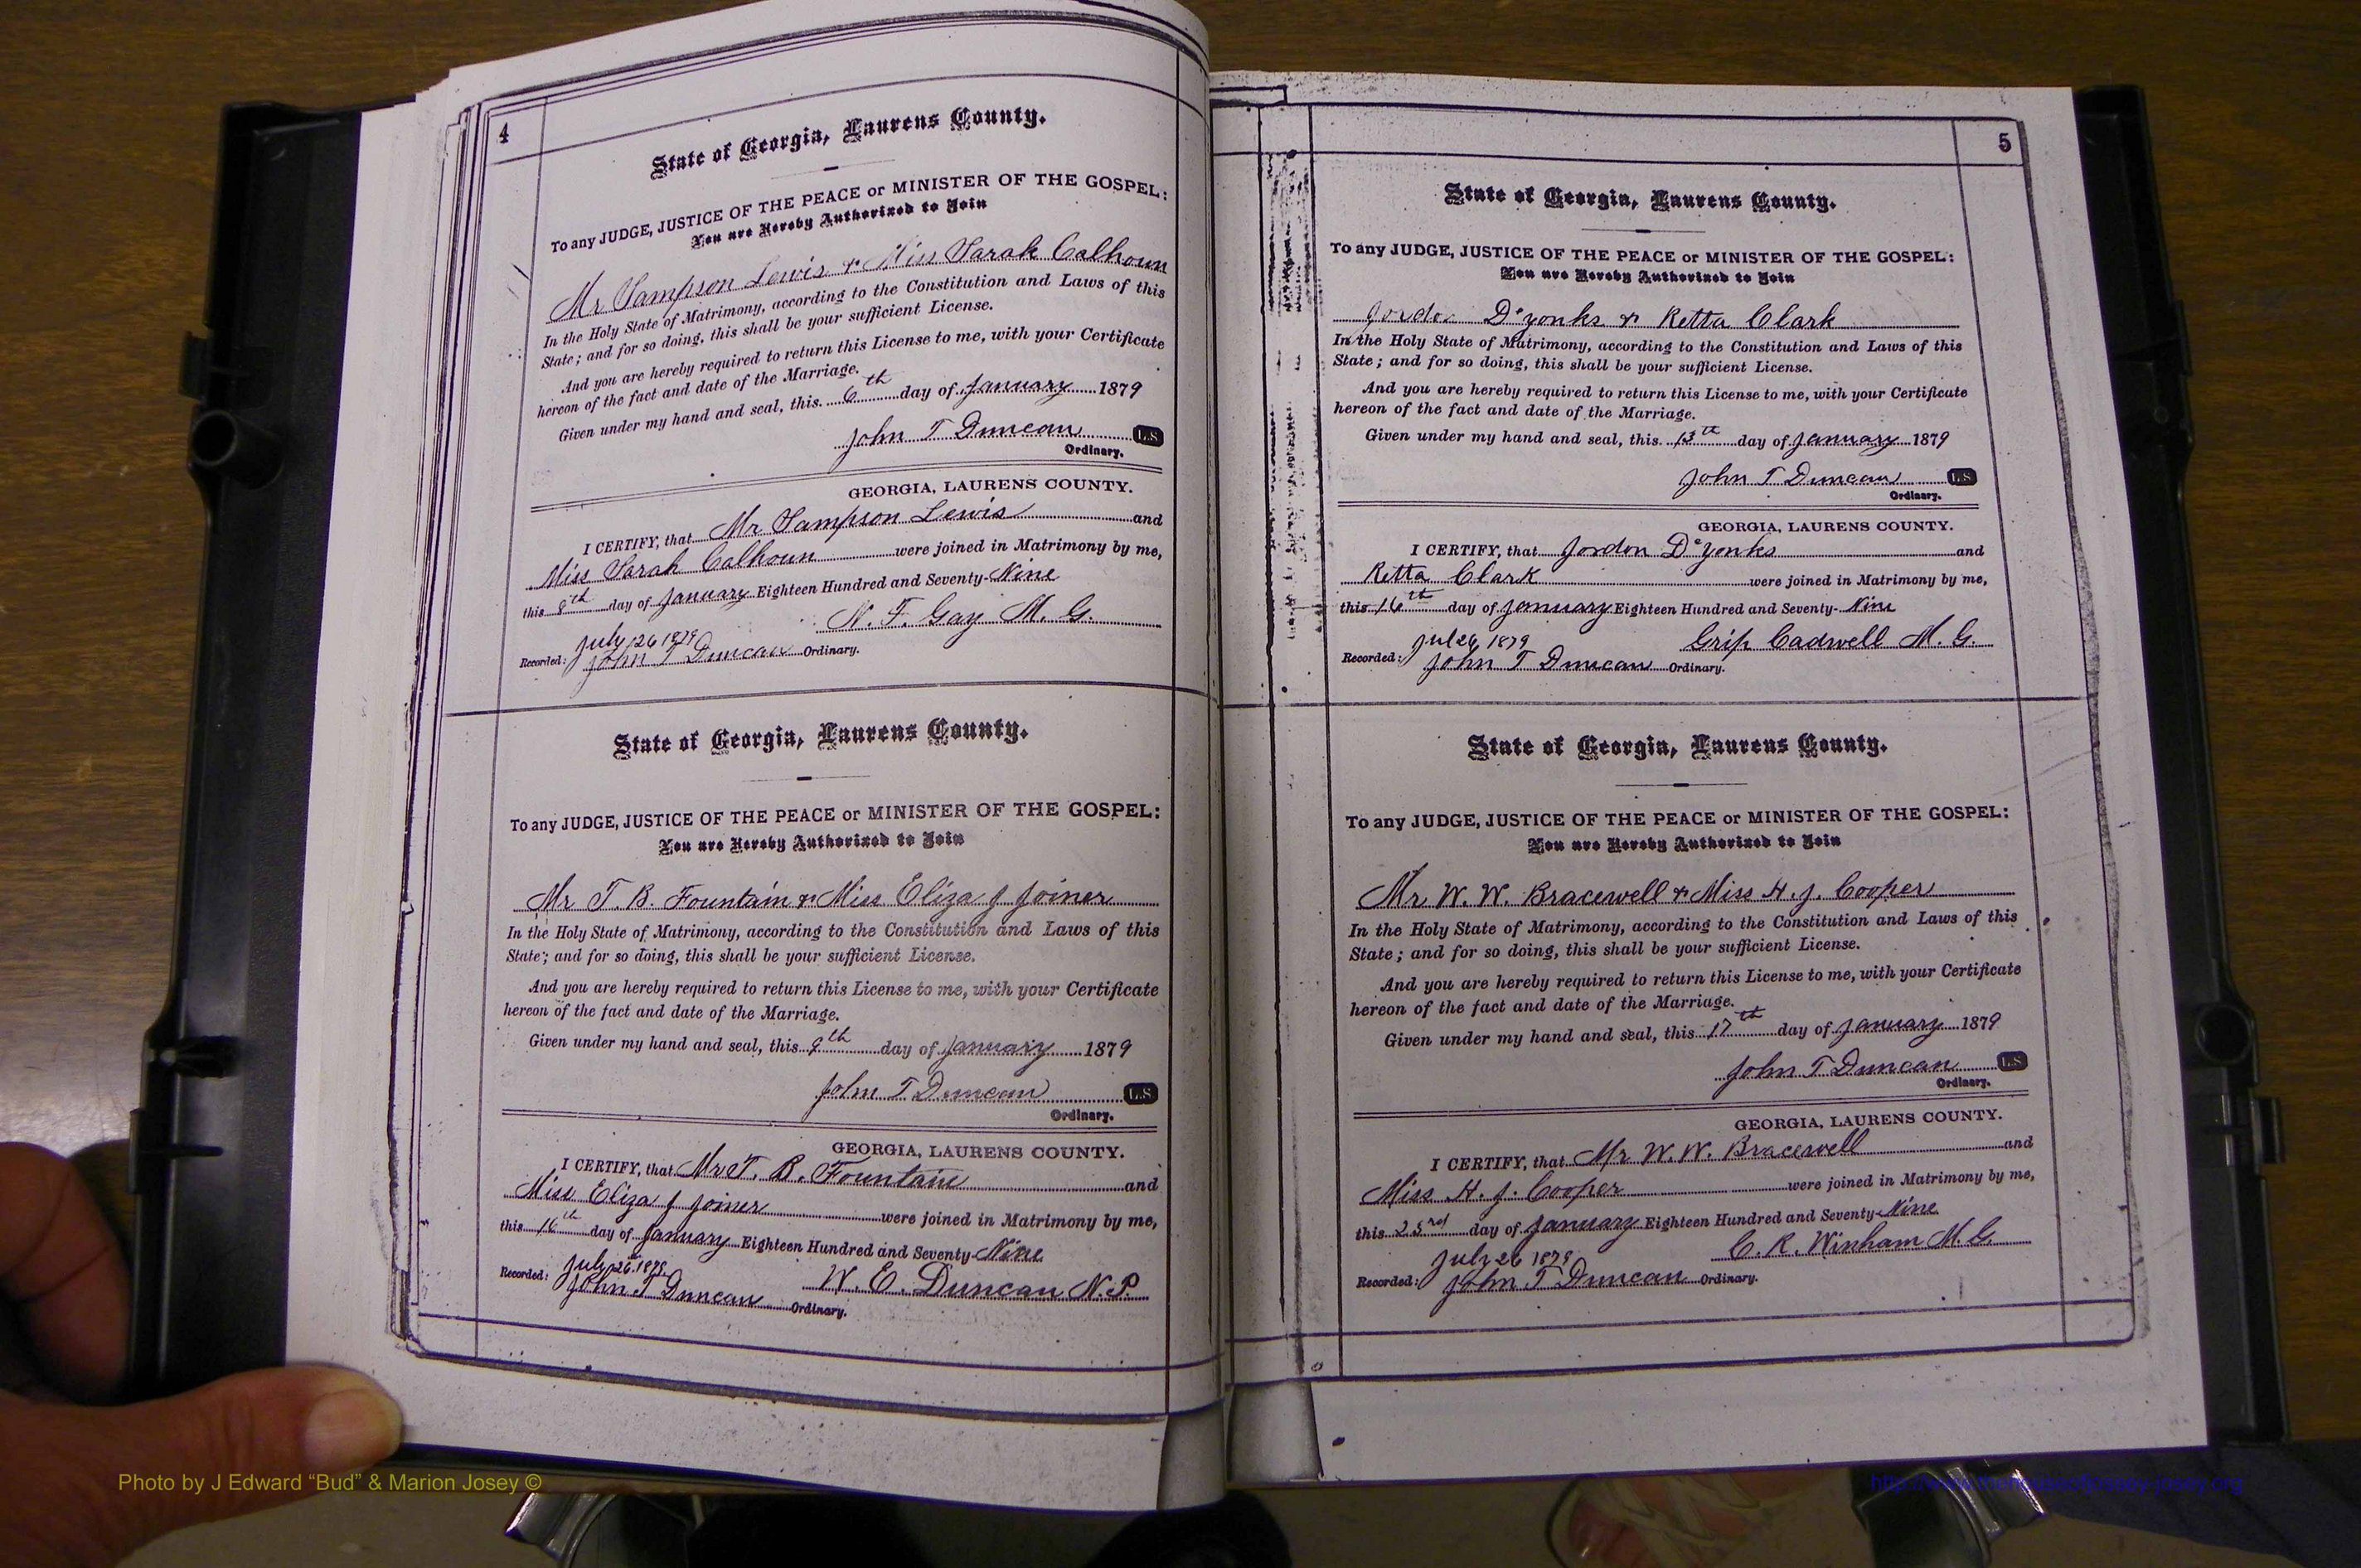 4
State of Georgia, Laurens County.
To any JUDGE, JUSTICE OF THE PEACE or MINISTER OF THE GOSPEL:
You are Hereby Authorized to Join
Mr Sampson Lewis & Miss Sarah Calhoun
In the Holy State of Matrimony, according to the Constitution and Laws of this
State; and for so doing, this shall be your sufficient License.
And you are hereby required to return this License to me, with your Certificate
hereon of the fact and date of the Marriage.
Given under my hand and seal, this 6th day of January 1879
John T Duncan L.S.
Ordinary.
GEORGIA, LAURENS COUNTY.
I CERTIFY, that Mr Sampson Lewis and
Miss Sarah Calhoun were joined in Matrimony by me,
this 8th day of January Eighteen Hundred and Seventy-Nine
N. F. Gay M. G.
July 26 1879
Recorded: John T Duncan Ordinary.
State of Georgia, Laurens County.
To any JUDGE, JUSTICE OF THE PEACE or MINISTER OF THE GOSPEL:
You are Hereby Authorized to Join
Mr T. B. Fountain & Miss Eliza J Joiner
In the Holy State of Matrimony, according to the Constitution and Laws of this
State; and for so doing, this shall be your sufficient License.
And you are hereby required to return this License to me, with your Certificate
hereon of the fact and date of the Marriage.
Given under my hand and seal, this 9th day of January 1879
John T Duncan L.S.
Ordinary.
GEORGIA, LAURENS COUNTY.
I CERTIFY, that Mr T. B. Fountain and
Miss Eliza J Joiner were joined in Matrimony by me,
this 16th day of January Eighteen Hundred and Seventy-Nine
July 26 1879
W. E. Duncan N.P.
Recorded: John T Duncan Ordinary.
5
State of Georgia, Laurens County.
To any JUDGE, JUSTICE OF THE PEACE or MINISTER OF THE GOSPEL:
You are Hereby Authorized to Join
Jordon D'yonks & Retta Clark
In the Holy State of Matrimony, according to the Constitution and Laws of this
State; and for so doing, this shall be your sufficient License.
And you are hereby required to return this License to me, with your Certificate
hereon of the fact and date of the Marriage.
Given under my hand and seal, this 13th day of January 1879
John T Duncan L.S.
Ordinary.
GEORGIA, LAURENS COUNTY.
I CERTIFY, that Jordon D'yonks and
Retta Clark were joined in Matrimony by me,
this 16th day of January Eighteen Hundred and Seventy-Nine
Jul 26 1879
Grip Cadwell M. G.
Recorded: John T Duncan Ordinary.
State of Georgia, Laurens County.
To any JUDGE, JUSTICE OF THE PEACE or MINISTER OF THE GOSPEL:
You are Hereby Authorized to Join
Mr W. W. Bracewell & Miss H. J. Cooper
In the Holy State of Matrimony, according to the Constitution and Laws of this
State; and for so doing, this shall be your sufficient License.
And you are hereby required to return this License to me, with your Certificate
hereon of the fact and date of the Marriage.
Given under my hand and seal, this 17th day of January 1879
John T Duncan L.S.
Ordinary.
GEORGIA, LAURENS COUNTY.
I CERTIFY, that Mr W. W. Bracewell and
Miss H. J. Cooper were joined in Matrimony by me,
this 23rd day of January Eighteen Hundred and Seventy-Nine
C. R. Winham M. G.
July 26 1879
Recorded: John T Duncan Ordinary.
Photo by J Edward “Bud” & Marion Josey ©
http://www.thehouseofjossey-josey.org